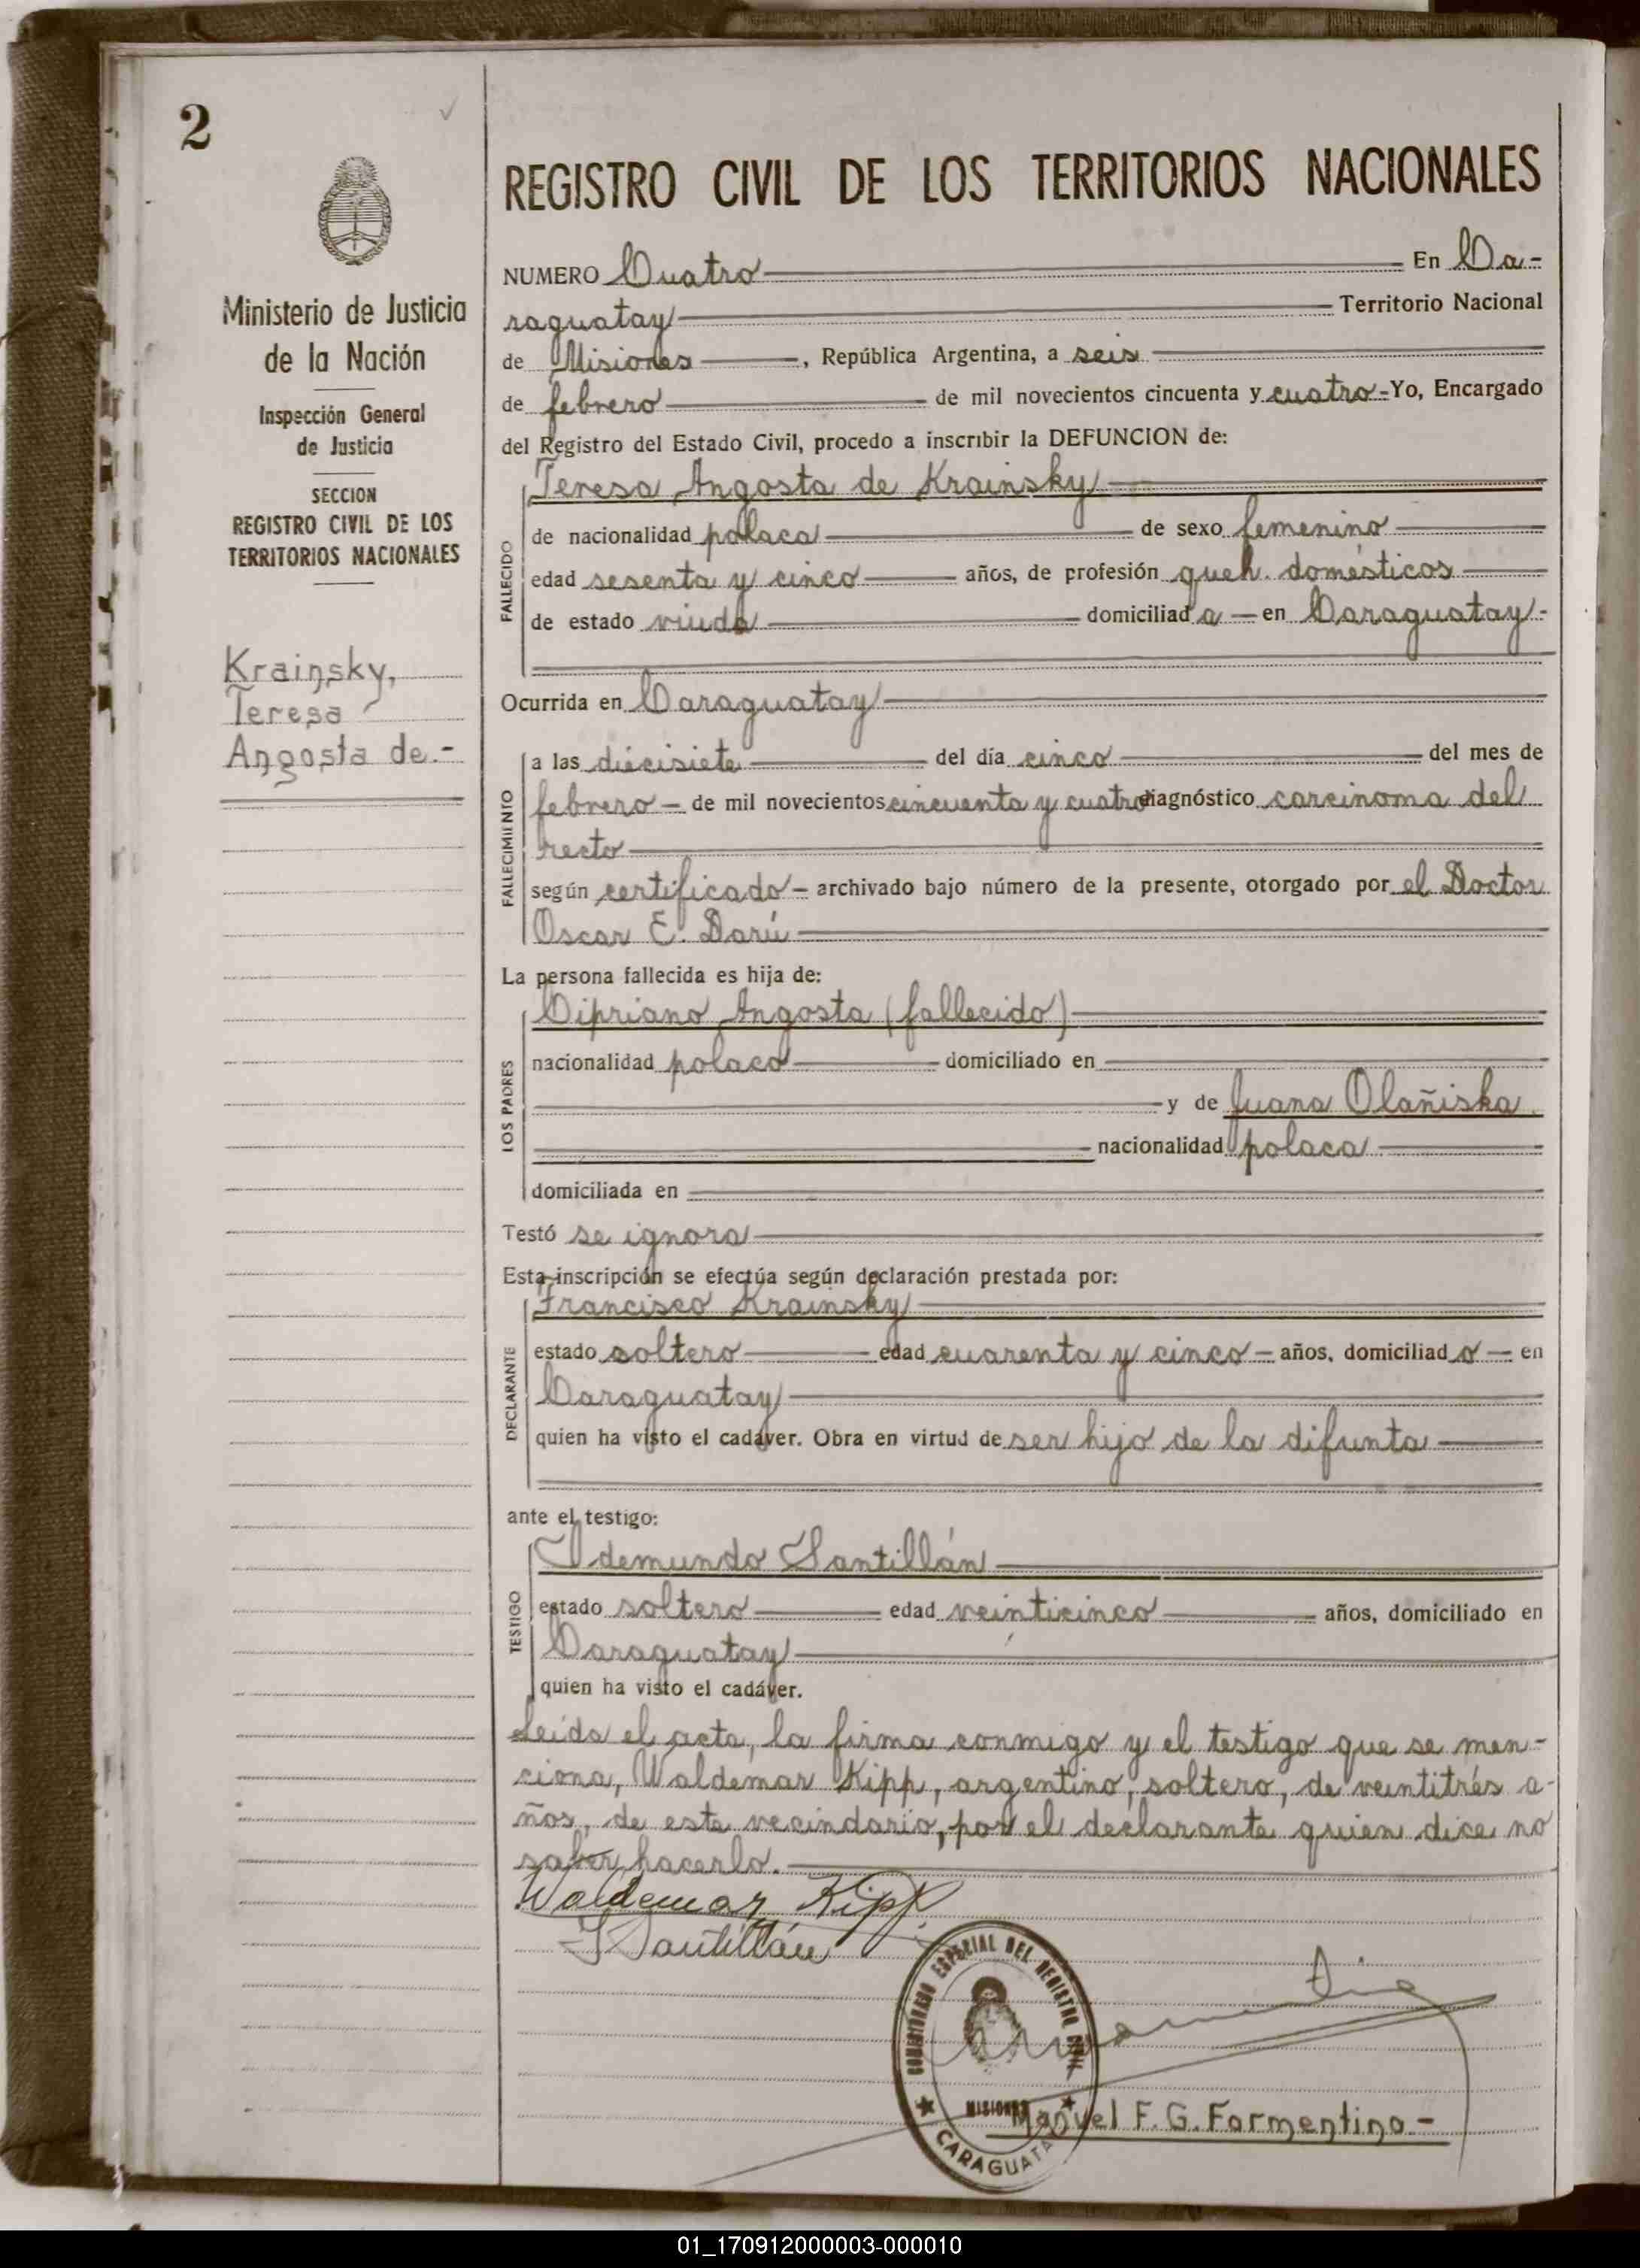 2
Ministerio de Justicia
de la Nación
Inspección General
de Justicia
SECCION
REGISTRO CIVIL DE LOS
TERRITORIOS NACIONALES
Krainsky,
Teresa
Angosta de.-
REGISTRO CIVIL DE LOS TERRITORIOS NACIONALES
NUMERO Cuatro En Ca-
raguatay Territorio Nacional
de Misiones, República Argentina, a seis
de febrero de mil novecientos cincuenta y cuatro- Yo, Encargado
del Registro del Estado Civil, procedo a inscribir la DEFUNCION de:
FALLECIDO
Teresa Angosta de Krainsky
de nacionalidad polaca de sexo femenino
edad sesenta y cinco años, de profesión queh. domésticos
de estado viuda domiciliada en Caraguatay-
Ocurrida en Caraguatay
FALLECIMIENTO
a las diecisiete del día cinco del mes de
febrero de mil novecientos cincuenta y cuatro diagnóstico carcinoma del
recto
según certificado archivado bajo número de la presente, otorgado por el Doctor
Oscar E. Darú
La persona fallecida es hija de:
LOS PADRES
Cipriano Angosta (fallecido)
nacionalidad polaco domiciliado en
y de Juana Olañiska
nacionalidad polaca
domiciliada en
Testó se ignora
Esta inscripción se efectúa según declaración prestada por:
DECLARANTE
Francisco Krainsky
estado soltero edad cuarenta y cinco años, domiciliado en
Caraguatay
quien ha visto el cadáver. Obra en virtud de ser hijo de la difunta
ante el testigo:
TESTIGO
Idemundo Santillán
estado soltero edad veinticinco años, domiciliado en
Caraguatay
quien ha visto el cadáver.
Leída el acta, la firma conmigo y el testigo que se men-
ciona, Waldemar Kipp, argentino, soltero, de veintitrés a-
ños, de este vecindario, por el declarante quien dice no
saber hacerlo.
Waldemar Kipp
I Santillán
ESPECIAL DEL REGISTRO CIVIL
MISIONES
CARAGUATAY
Manuel F. G. Formentino-
01_170912000003-000010